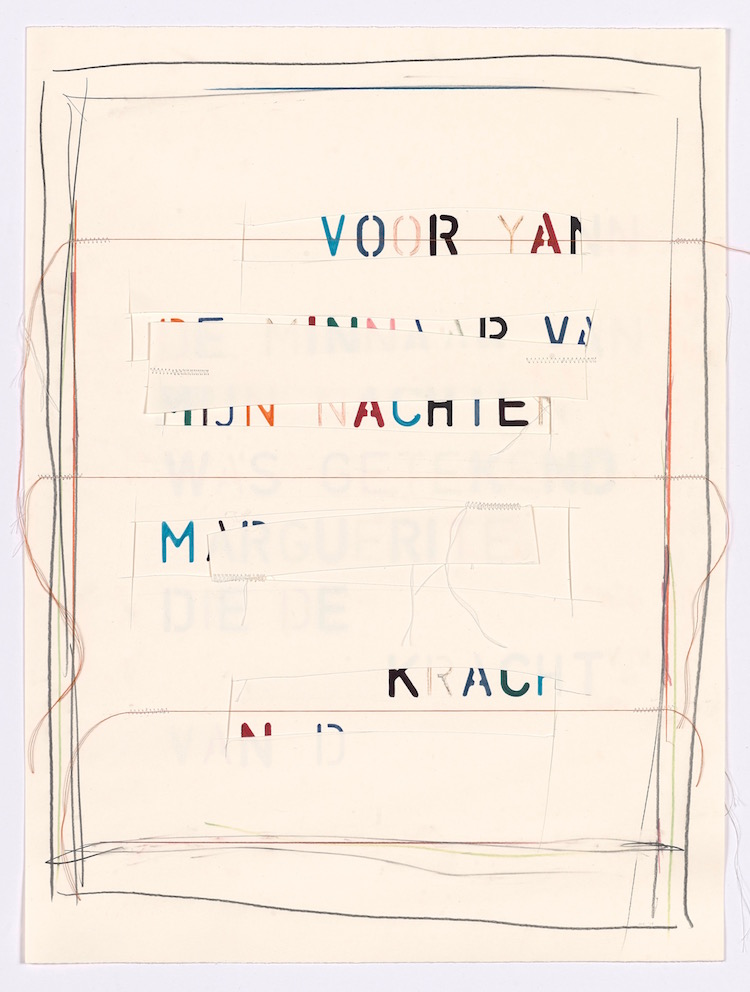 VOOR YANN
DE MINNAAR VAN
MIJN NACHTEN
WAS GETEKEND
MARGUERITE
DIE DE
KRACHT
VAN D